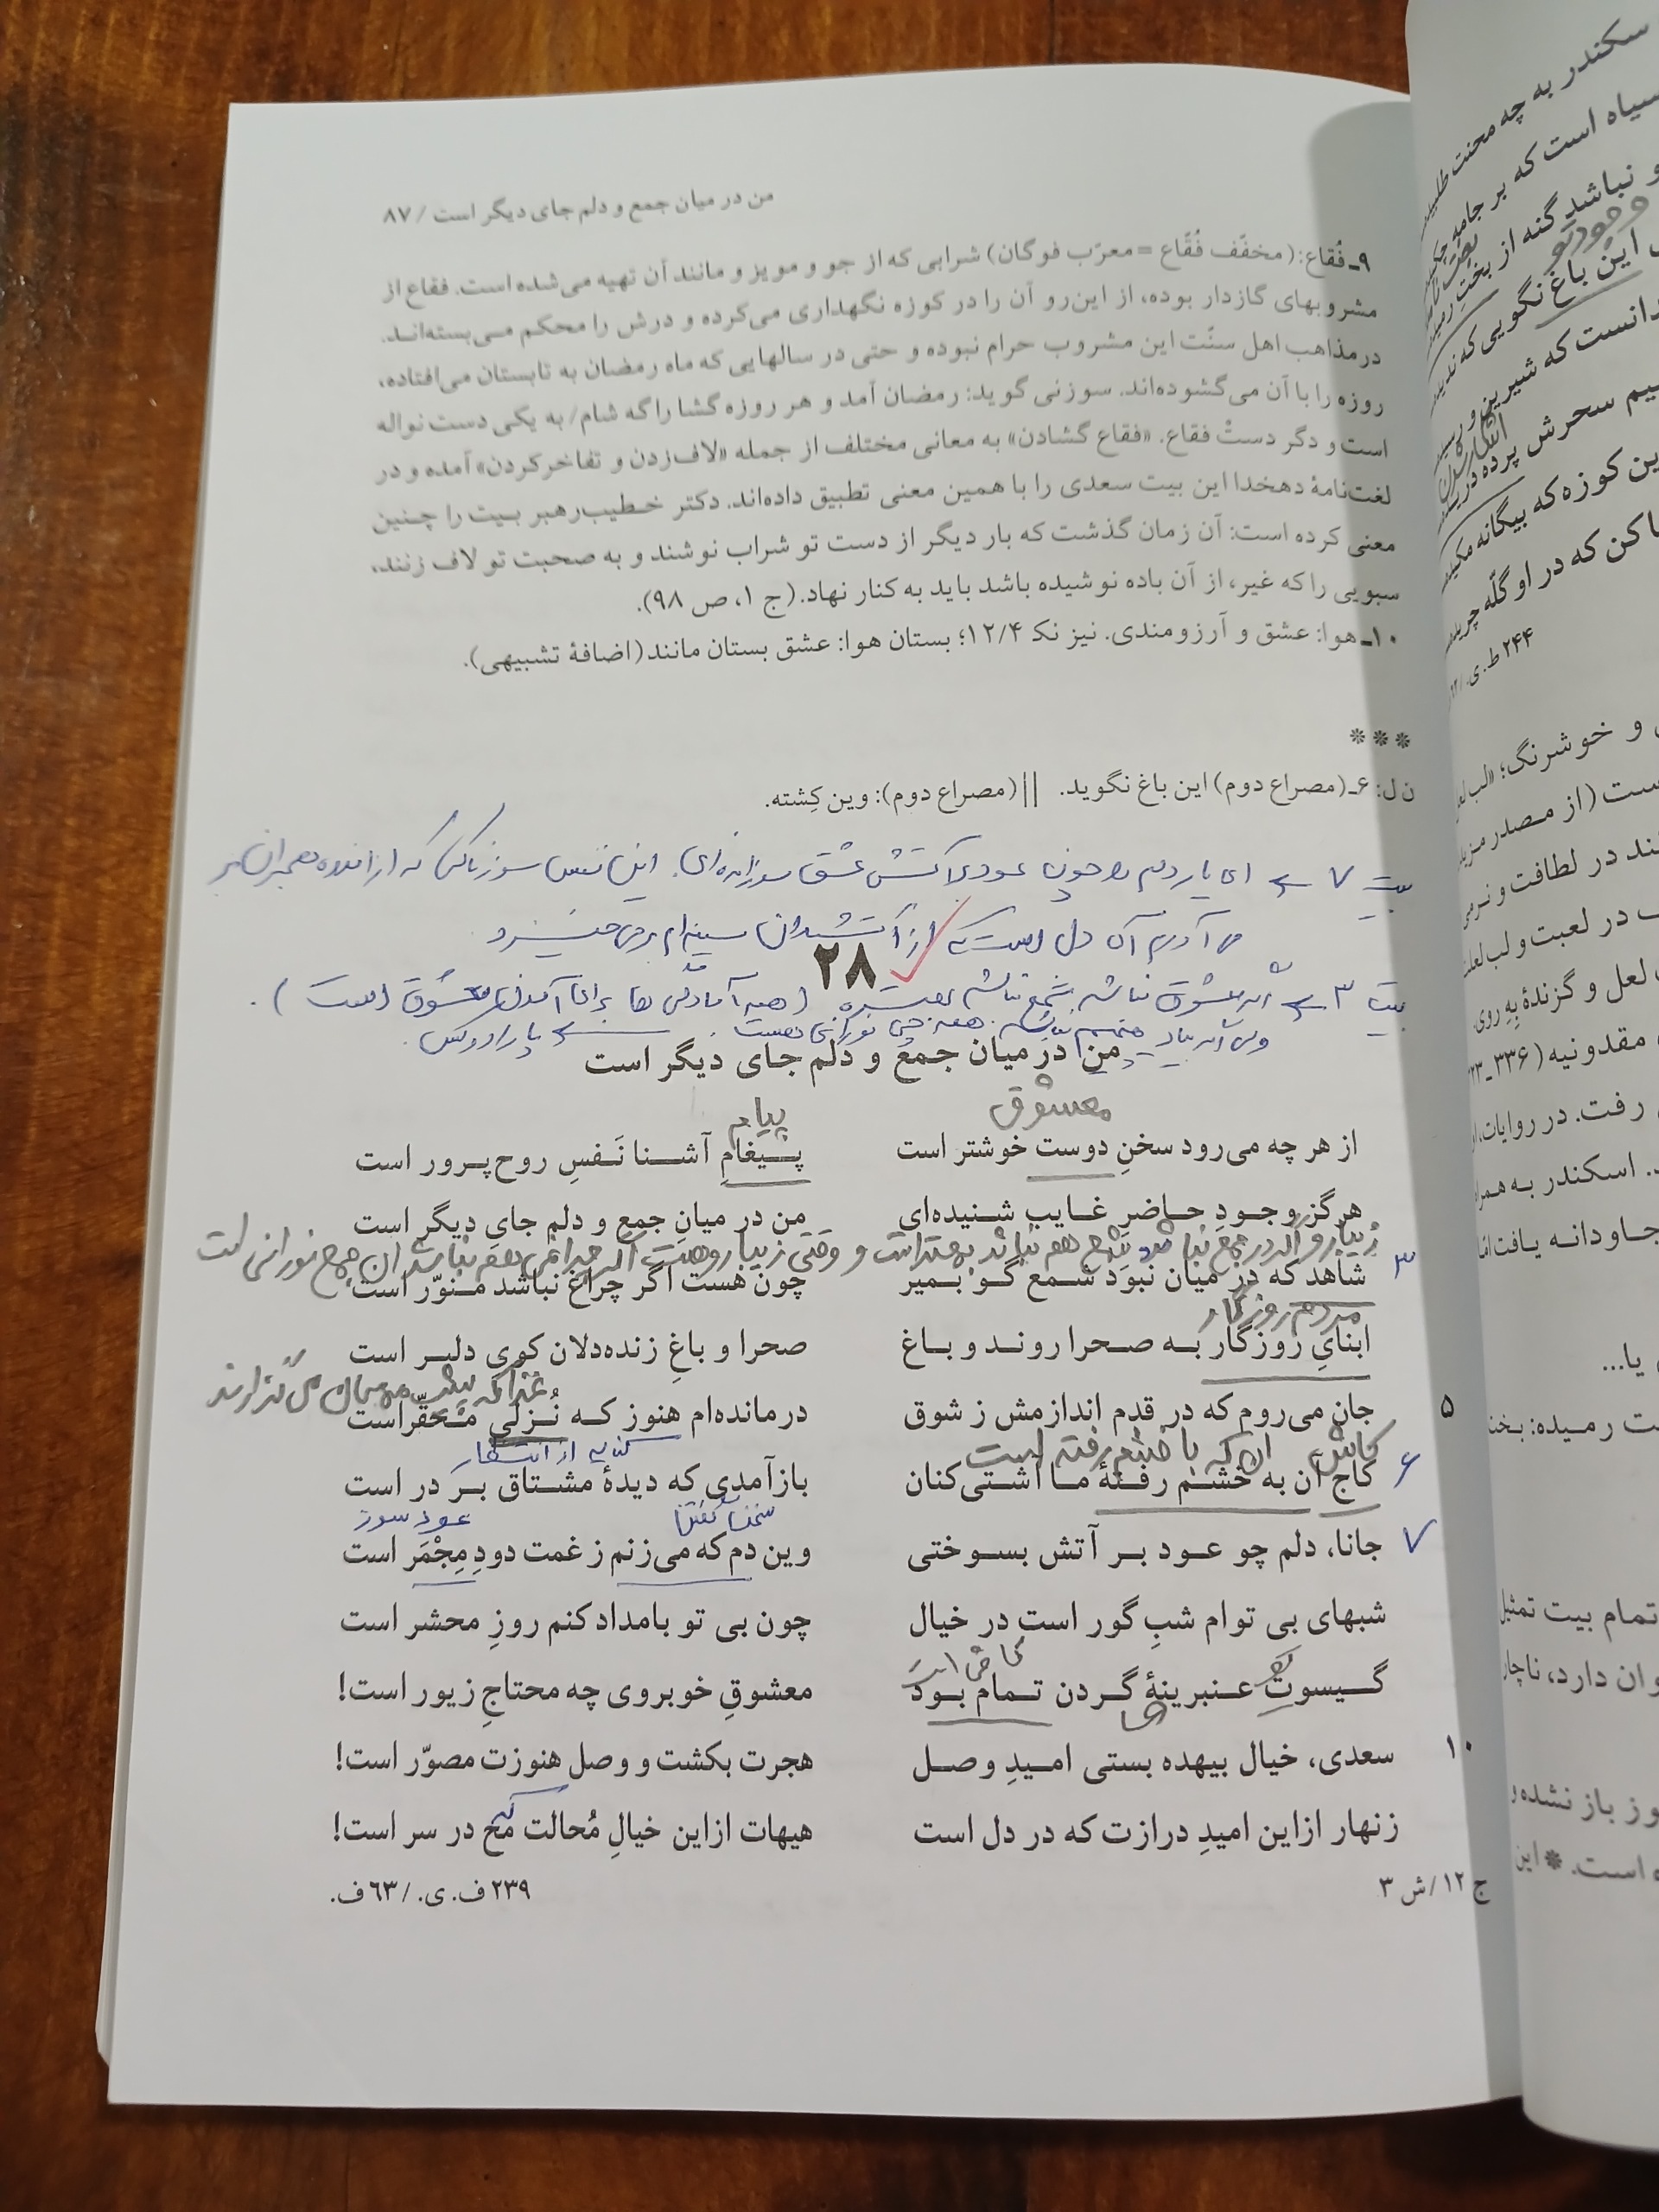 من در میان جمع و دلم جای دیگر است / ۸۷
۹ـ فُقاع: (مخفّف فُقّاع = معرّب فوگان) شرابی که از جو و مویز و مانند آن تهیه می‌شده است. فقاع از
مشروبهای گازدار بوده، از این‌رو آن را در کوزه نگهداری می‌کرده و درش را محکم می‌بسته‌اند.
در مذاهب اهل سنّت این مشروب حرام نبوده و حتی در سالهایی که ماه رمضان به تابستان می‌افتاده،
روزه را با آن می‌گشوده‌اند. سوزنی گوید: رمضان آمد و هر روزه گشا را گه شام/ به یکی دست نواله
است و دگر دستْ فقاع. «فقاع گشادن» به معانی مختلف از جمله «لاف‌زدن و تفاخرکردن» آمده و در
لغت‌نامهٔ دهخدا این بیت سعدی را با همین معنی تطبیق داده‌اند. دکتر خطیب‌رهبر بیت را چنین
معنی کرده است: آن زمان گذشت که بار دیگر از دست تو شراب نوشند و به صحبت تو لاف زنند،
سبویی را که غیر، از آن باده نوشیده باشد باید به کنار نهاد. (ج ۱، ص ۹۸).
۱۰ـ هوا: عشق و آرزومندی. نیز نک ۱۲/۴؛ بستان هوا: عشق بستان مانند (اضافهٔ تشبیهی).
***
ن ل: ۶ـ (مصراع دوم) این باغ نگوید. || (مصراع دوم): وین کِشته.
بیت ۷ ← ای یار دلم را چون عود بر آتش عشق سوزانده‌ای. این نفس سوزناکی که از اندوه هجران بر
می آورم آه دل است که از آتشدان سینه‌ام برمی‌خیزد
۲۸
بیت ۳ ← اگر معشوق نباشه شمع نباشه بهتره (همه آمادگی ها برای آمدن معشوق است).
ولی اگر بیاد شمع نباشه همه چی نورانی هست. ← پارادوکس.
من در میان جمع و دلم جای دیگر است
معشوق
پیام
از هر چه می‌رود سخنِ دوست خوشتر است پیغامِ آشنا نَفسِ روح‌پرور است
هرگز وجودِ حاضرِ غایب شنیده‌ای من در میانِ جمع و دلم جایِ دیگر است
زیبارو اگر در جمع نباشد شمع هم نباشد بهتر است و وقتی زیبارو هست اگر چراغی هم نباشد آن جمع نورانی است
۳ شاهد که در میان نبوَد شمع گو بمیر چون هست اگر چراغ نباشد منوّر است
مردم روزگار
ابنایِ روزگار به صحرا روند و باغ صحرا و باغِ زنده‌دلان کویِ دلبر است
غذا که پیش مهمان می گذارند
۵ جان می‌روم که در قدم اندازمش ز شوق درمانده‌ام هنوز که نُزلی محقّر است
کاش آن که با خشم رفته است
کنایه از انتظار
۶ کاج آن به خشم رفتهٔ ما آشتی‌کنان بازآمدی که دیدهٔ مشتاق بر در است
سخن گفتن
عود سوز
۷ جانا، دلم چو عود بر آتش بسوختی وین دم که می‌زنم ز غمت دودِ مِجْمَر است
شبهای بی توام شبِ گور است در خیال چون بی تو بامداد کنم روزِ محشر است
کافی است
گیسوت عنبرینهٔ گردن تمام بود معشوقِ خوبروی چه محتاجِ زیور است!
۱۰ سعدی، خیال بیهده بستی امیدِ وصل هجرت بکشت و وصل هنوزت مصوّر است!
که
زنهار ازاین امیدِ درازت که در دل است هیهات ازاین خیالِ مُحالت مخ در سر است!
ج ۱۲ /ش ۳ ۲۳۹ ف. ی. / ۶۳ ف.
سکندر به چه محنت طلبید
سیاه است که بر جامه چکید
و نباشد گنه از بختِ رمید
این باغ نگویی که ندید
دانست که شیرین و رسید
آشکار شدن
سحرش پرده درید
ین کوزه که بیگانه مکید
ا کن که در او گلّه چرید
۲۴۴ ط. ی.
و خوشرنگ؛
ست (از مصدر
ند در لطافت و نرمی
در لعبت و لب لعلت
لعل و گزندهٔ به روی.
مقدونیه (۳۳۶ـ
رفت. در روایات،
اسکندر به همراه
جاودانه یافت
یا...
ت رمیده:
تمام بیت تمثیل
وان دارد، ناچار
وز باز نشده و
ه است. * این